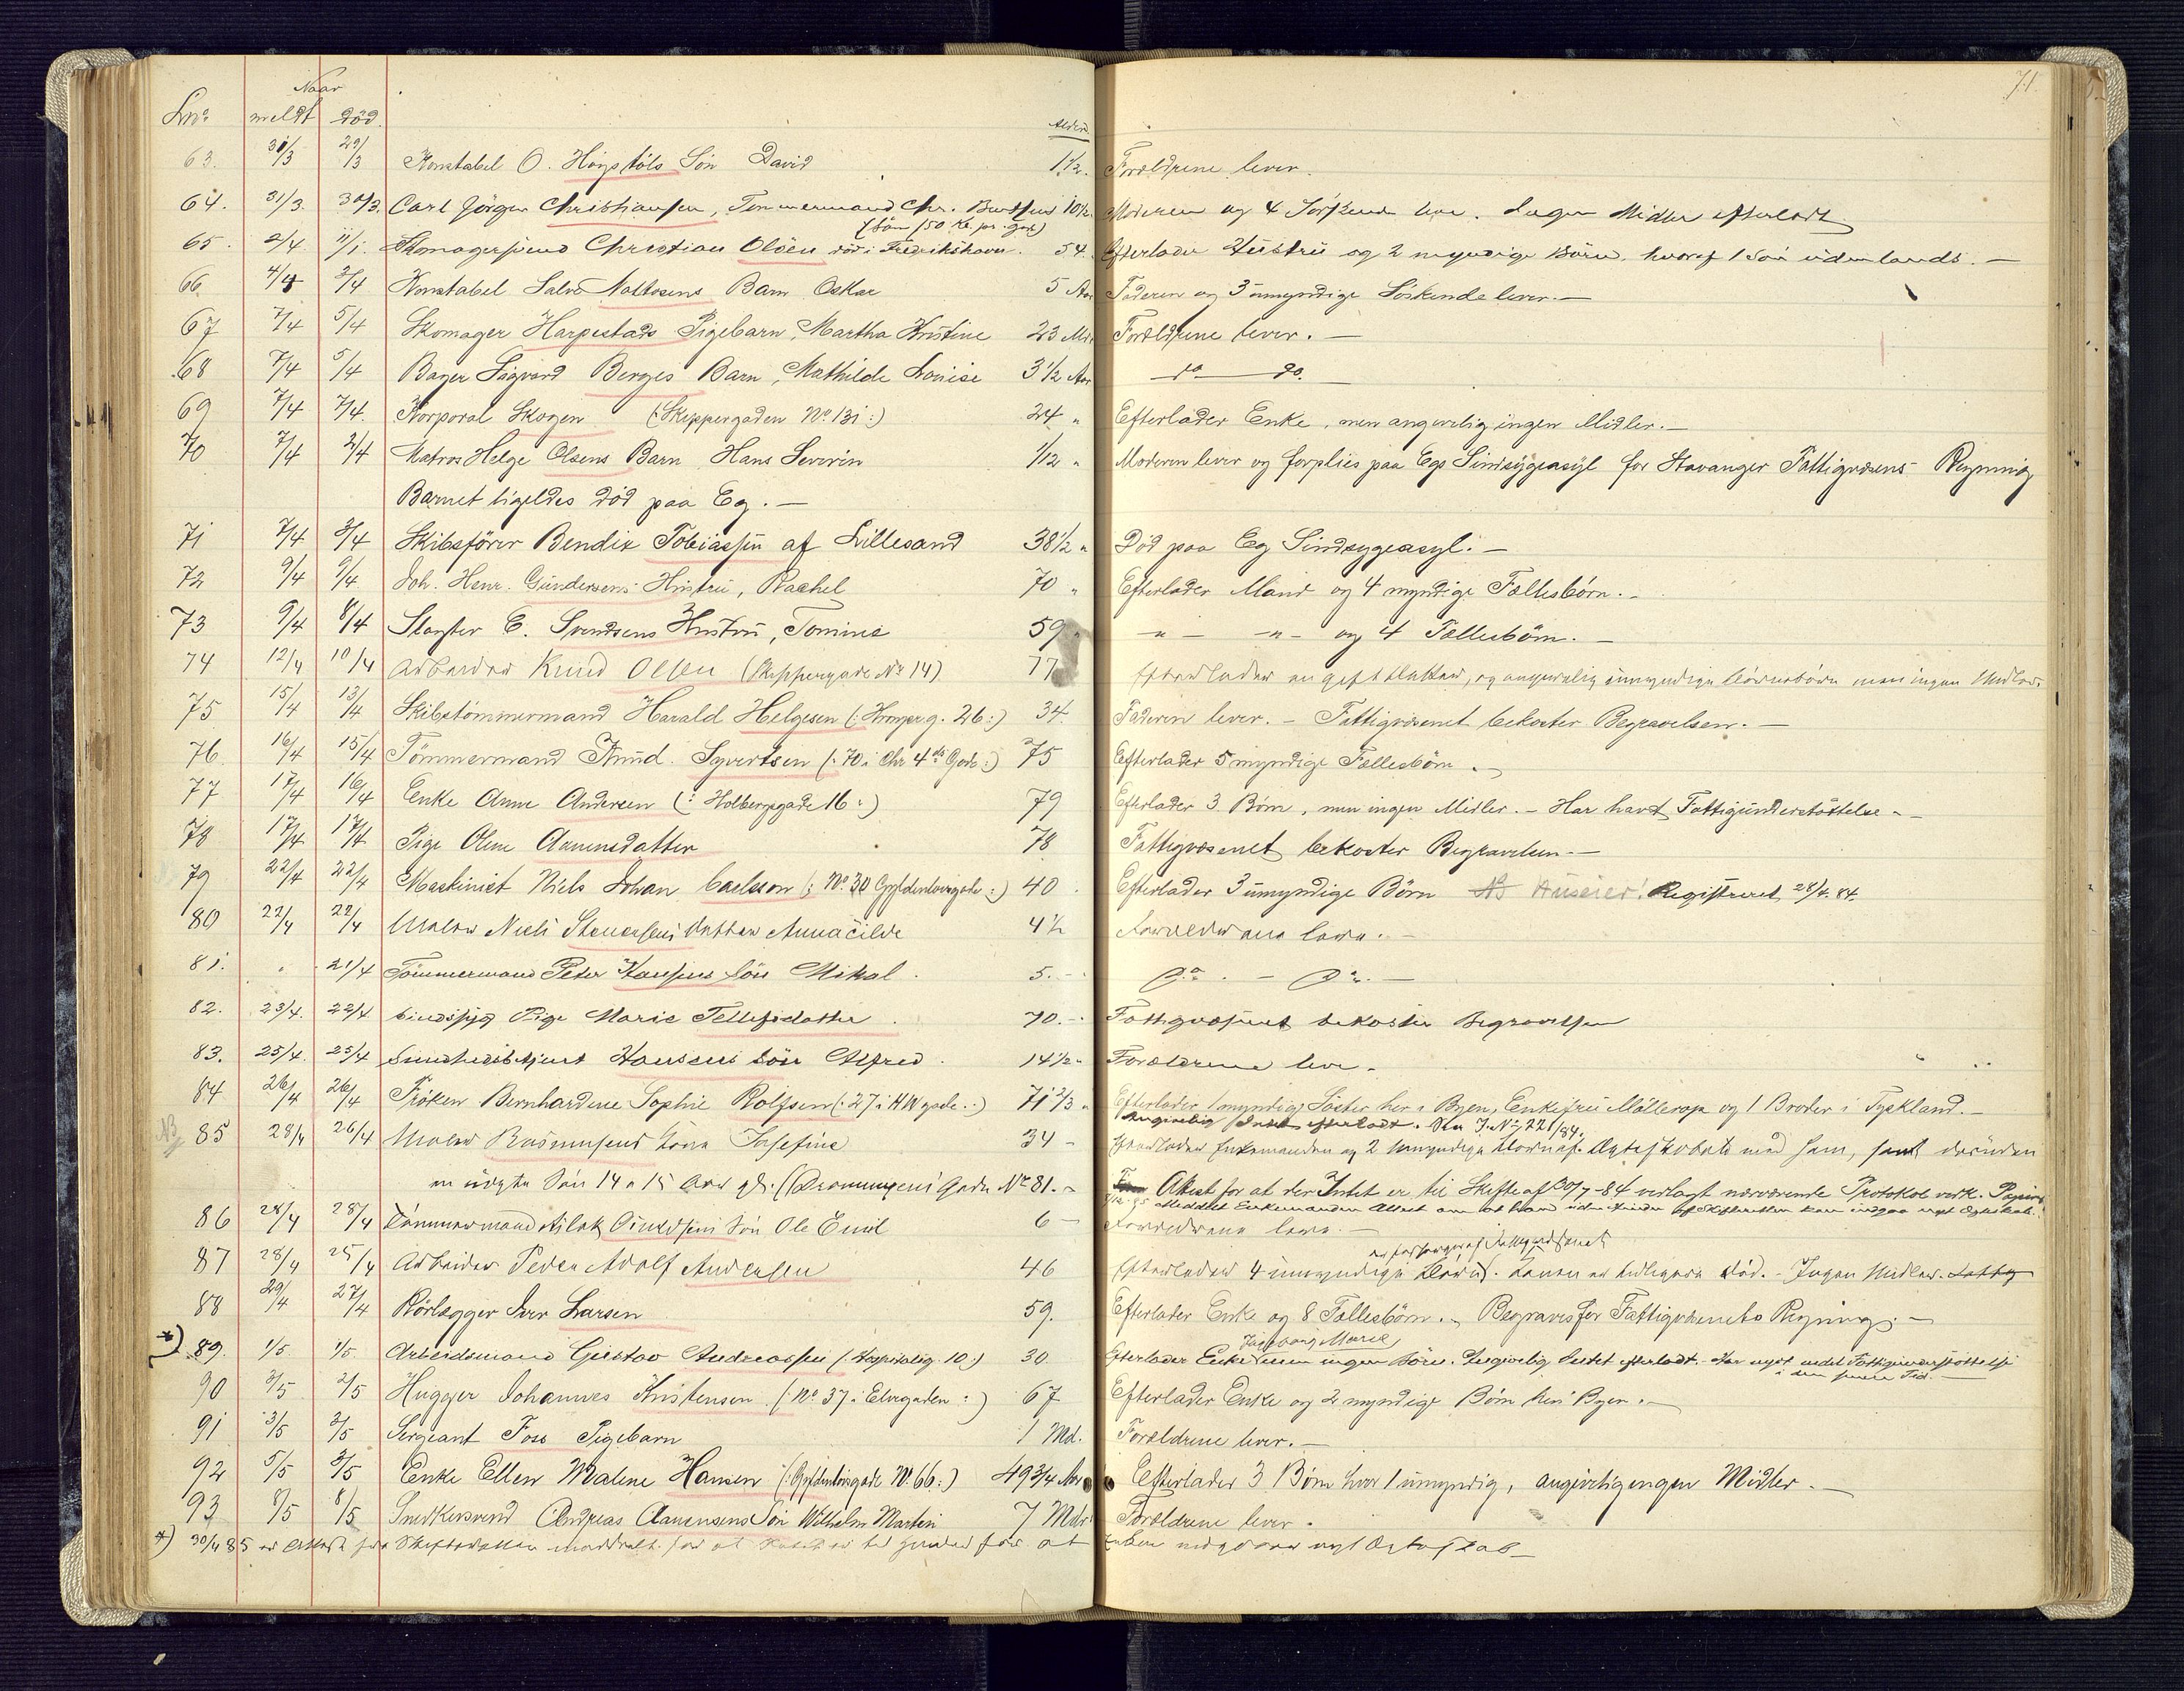 71.
Naar
Lnr. meldt død. Alder
63. 31/3 29/3 Konstabel O. Høgstøls Søn David 1 1/2. Forældrene lever.
64. 31/3. 30/3. Carl Jörgen Christiansen, Tømmermand Chr. 10 1/2. Moderen og 4 Söskende leve. Ingen Midler efterladt
(Søn 150 Kr. pr. )
65. 2/4. 11/1. Skomagersvend Christian Olsen død i Frederikshavn. 54. Efterlader Hustru og 2 myndige Börn, hvoraf 1 Søn udenlands. —
66 4/4 3/4 Konstabel Salve Barn Oskar 5 Aar Faderen og 3 umyndige Söskende lever. —
67 7/4 5/4 Skomager Harpestads Pigebarn, Martha Kristine 23 Mdr Forældrene lever. —
68 7/4 5/4 Bager Sigvard Berges Barn, Mathilde Louise 3 1/2 Aar — do — do. —
69 7/4 7/4. Korporal Skogen (: Skippergaden No. 131 :) 24 " Efterlader Enke, men angivelig ingen Midler. —
70 7/4 2/4 Matros Helge Olsens Barn Hans Severin 1/12 " Moderen lever og forpleies paa Egs Sindsygeasyl for Stavanger Fattigvæsens Regning
Barnet ligeledes død paa Eg. —
71 7/4 3/4 Skibsfører Bendix Tobiassen af Lillesand 38 1/2 " Død paa Eg Sindsygeasyl. —
72 9/4 9/4 Joh. Henr. Gundersens Hustru, Rachel 70 " Efterlader Mand og 4 myndige Fællesbörn. —
73 9/4 8/4 Slagter E. Svendsens Hustru, Tomine 59 " — " — — " — og 4 Fællesbörn. —
74 12/4 10/4 Arbeider Knud Olsen (Skippergade No 14) 77 Efterlader en gift Datter, og angivelig umyndige Börnebörn men ingen Midler.
75 15/4 13/4 Skibstømmermand Harald Helgesen (: Kronprg. 26 :) 34 Faderen lever. — Fattigvæsenet bekoster Begravelsen. —
76 16/4 15/4 Tømmermand Knud Syvertsen (: 70 i Chr 4des Gade :) 75 Efterlader 5 myndige Fællesbörn. —
77 17/4 16/4 Enke Anne Andersen (: Holbergsgade 16 :) 79 Efterlader 3 Børn, men ingen Midler. — Har havt Fattigunderstøttelse. —
78 17/4 17/4 Pige Oline Aanensdatter 78 Fattigvæsenet bekoster Begravelsen —
79 22/4 22/4 Maskinist Niels Johan Carlsson (: No. 30 Gyldenløvesgade :) 40 Efterlader 3 umyndige Børn Huseier! Registreret 28/4. 84.
80 22/4 22/4 Maler Niels Datter 4 1/2 Forældrene leve. —
81. " 21/4 Tømmermand Peter Hansens Søn Mikal. 5. — Do. — Do. —
82. 23/4. 22/4 Sindssyg Pige Marie Tellefsdatter 70. — Fattigvæsenet bekoster Begravelsen
83. 25/4. 25/4 Sundhedsbetjent Hansens Søn Alfred. 14 1/2 " Forældrene leve. —
84 26/4 26/4 Frøken Bernhardine Sophie Rolfsen (: 27 i HWgsde :) 71 2/3 " Efterlader 1 myndig Søster her i Byen, Enkefru Møllerop og 1 Broder i Tyskland. —
Angivelig Intet efterladt. Se J. No. 221/84.
NB 85 28/4 26/4 Maler Rasmussens Kone Josefine 34 — Efterlader Enkemanden og 2 umyndige Børn af Ægteskabet med ham, samt desuden
en uægte Søn 14 a 15 Aar gl. (Dronningens Gade No 81. — Attest for at der Intet er til Skifte af 30/7 - 84 verlagt nærværende Protokol vedk. Papirer
Meddelt Enkemanden Attest om at han uden Hinder af Skifteretten kan indgaa nyt Ægteskab.
86 28/4 28/4 Tømmermand Aslak Søn Ole Emil 6 — Forældrene leve. —
87 28/4 25/4 Arbeider Peder Adolf Andersen 46 Efterlader 4 umyndige Børn. Konen er tidligere død. — Ingen Midler.
88 29/4 27/4 Rörlægger Iver Larsen 59. Efterlader Enke og 8 Fællesbörn. — Begraves for Fattigvæsenets Regning. —
*) 89. 1/5. 1/5. Arbeidsmand Gustav Andreassen (: Hospitalsg. 10. :) 30 Efterlader Enke Ingeborg Marie men ingen Börn. Angivelig Intet efterladt. Har nydt Fattigunderstøttelse
i den senere Tid. —
90 3/5 2/5 Hugger Johannes Kristensen (: No. 37 i Elvegaden :) 67 Efterlader Enke og 2 myndige Börn her i Byen. —
91 3/5 3/5 Sergeant Foss Pigebarn 1 Md. Forældrene lever. —
92 5/5 3/5 Enke Ellen Maline Hansen (: Gyldenløvesgade No. 66 :) 49 3/4 Aar Efterlader 3 Børn hvor 1 umyndig, angivelig ingen Midler. —
93 8/5 8/5 Snedkersvend Andreas Aanensens Søn Wilhelm Martin 7 Mdr Forældrene lever.
*) 30/4 85 er Attest fra Skifteretten meddelt for at Intet er til Hinder for at Enken indgaar nyt Ægteskab —